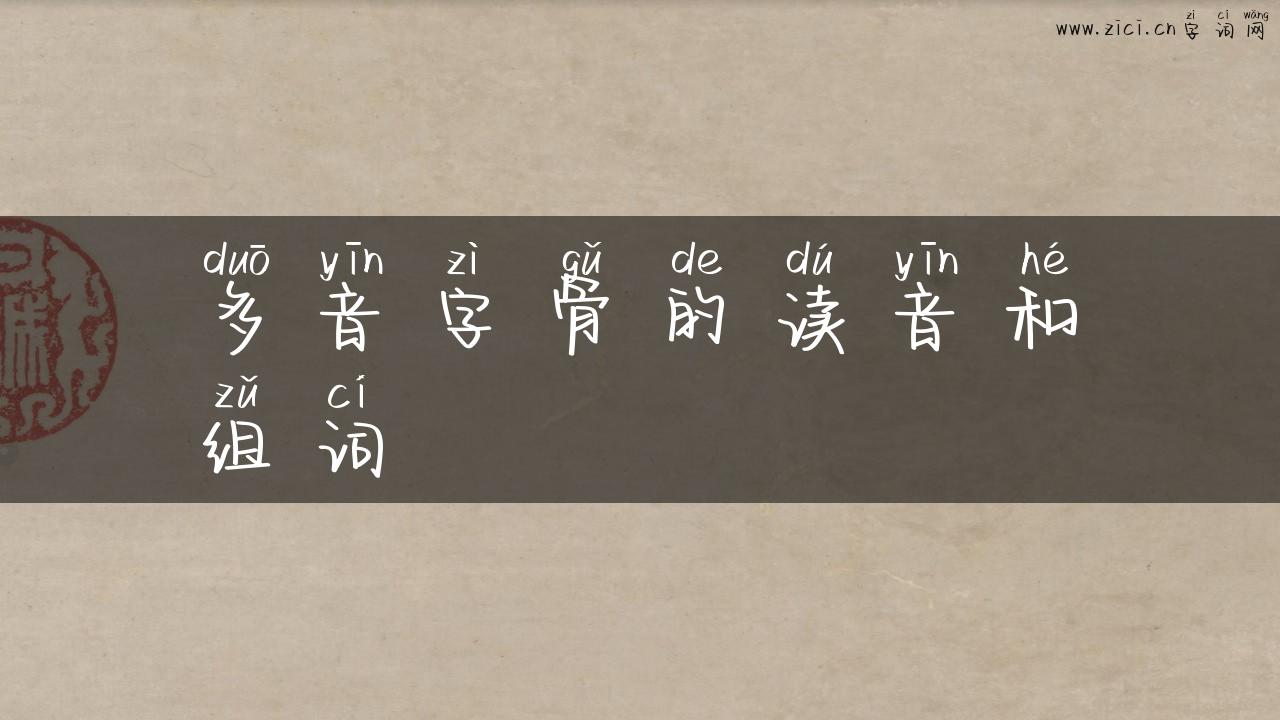 zì cí wǎng
www.zici.cn 字 词 网
duō yīn zì gǔ de dú yīn hé
多 音 字 骨 的 读 音 和
zǔ cí
组 词